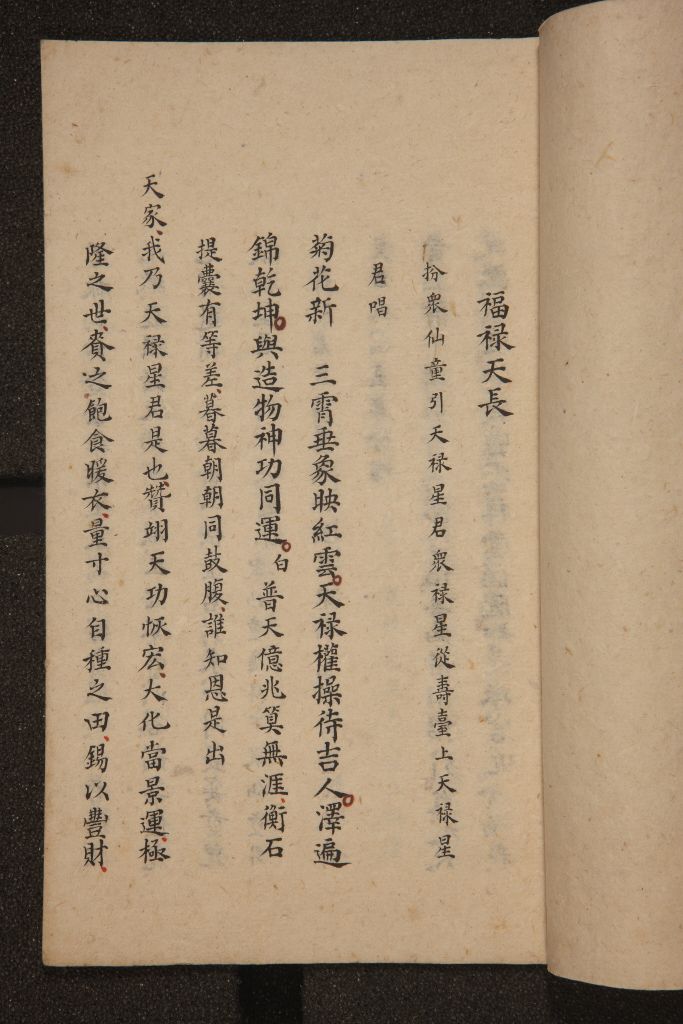 福祿天長
扮衆仙童引天祿星君衆祿星從壽臺上天祿星
君唱
菊花新 三霄垂象映紅雲。天祿權操待吉人。澤遍
錦乾坤。與造物神功同運。白 普天億兆筭無涯、衡石
提囊有等差、暮暮朝朝同鼓腹、誰知恩是出
天家、我乃天祿星君是也、贊翊天功恢宏、大化當景運、極
隆之世、賚之飽食暖衣、量寸心自種之田、錫以豐財、